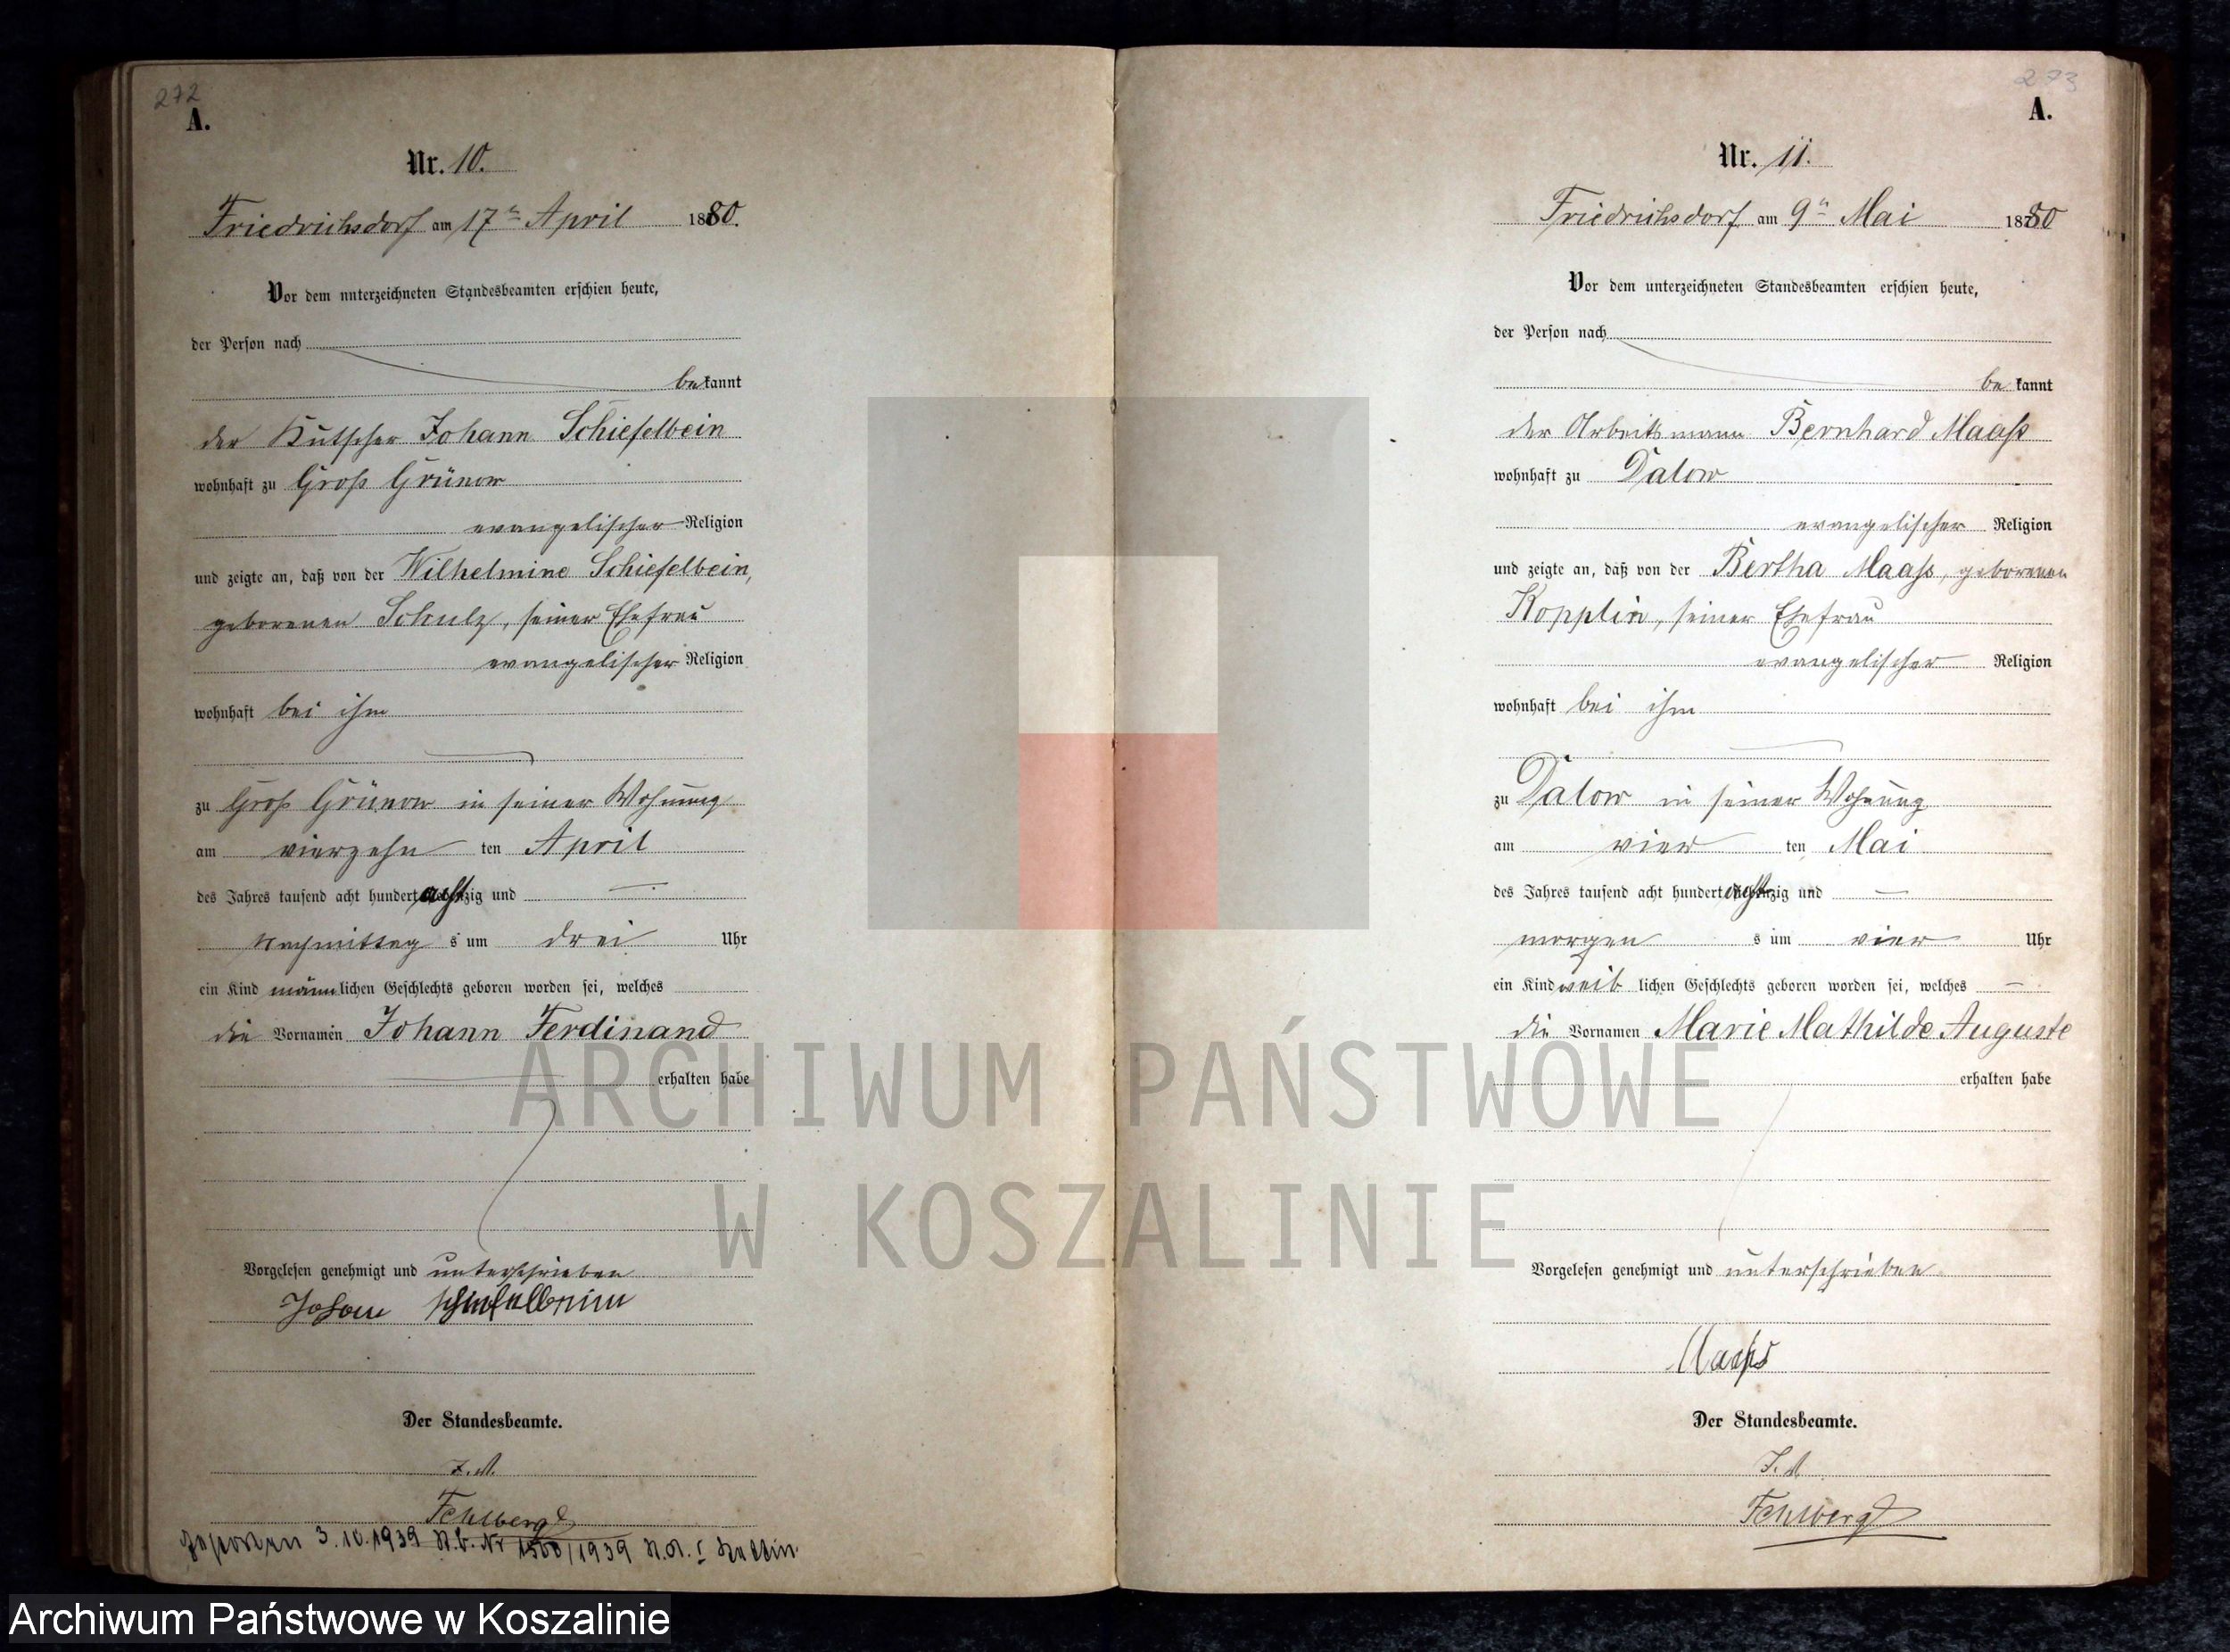 272
A.
Nr. 10.
Friedrichsdorf am 17ten April 1880.
Vor dem unterzeichneten Standesbeamten erschien heute,
der Person nach
bekannt
der Kutscher Johann Schiefelbein
wohnhaft zu Groß Grünow
evangelischer Religion
und zeigte an, daß von der Wilhelmine Schiefelbein,
geborenen Schulz, seiner Ehefrau
evangelischer Religion
wohnhaft bei ihm
zu Groß Grünow in seiner Wohnung
am vierzehn ten April
des Jahres tausend acht hundert achtzig und
Nachmittag s um drei Uhr
ein Kind männlichen Geschlechts geboren worden sei, welches
die Vornamen Johann Ferdinand
erhalten habe
Vorgelesen genehmigt und unterschrieben
Johann Schiefelbein
Der Standesbeamte.
Fehlberg
gestorben 3.10.1939 Nr 1500/1939 Stettin
273
A.
Nr. 11.
Friedrichsdorf am 9ten Mai 1880
Vor dem unterzeichneten Standesbeamten erschien heute,
der Person nach
be kannt
der Arbeitsmann Bernhard Maaß
wohnhaft zu Dalow
evangelischer Religion
und zeigte an, daß von der Bertha Maaß, geborenen
Kopplin, seiner Ehefrau
evangelischer Religion
wohnhaft bei ihm
zu Dalow in seiner Wohnung
am vier ten Mai
des Jahres tausend acht hundert achtzig und
morgen s um vier Uhr
ein Kind weib lichen Geschlechts geboren worden sei, welches
die Vornamen Marie Mathilde Auguste
erhalten habe
Vorgelesen genehmigt und unterschrieben
Maaß
Der Standesbeamte.
Fehlberg
ARCHIWUM PAŃSTWOWE
W KOSZALINIE
Archiwum Państwowe w Koszalinie